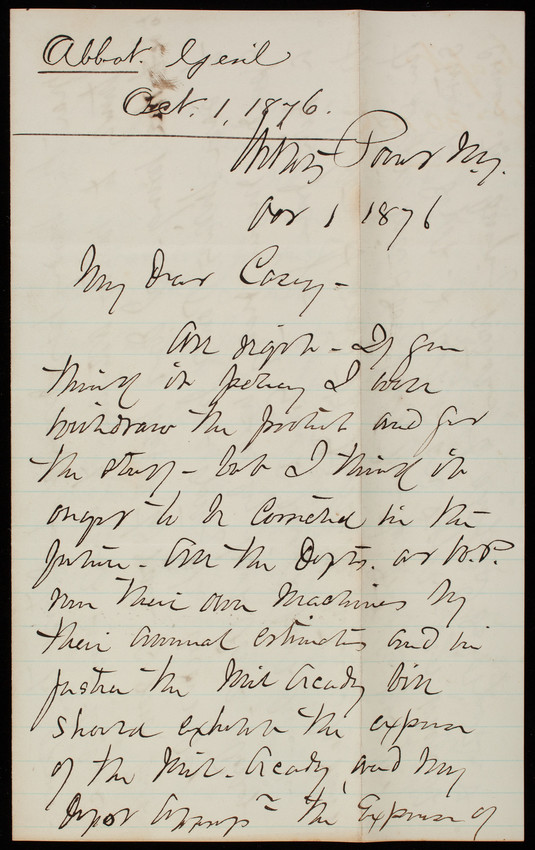 Abbot. Genl
Oct. 1, 1876.
Willets Point N.Y.
Oct 1 1876
My Dear Casey -
All right - If you
think it policy I will
withdraw the protest and get
the stuff - but I think it
ought to be corrected in the
future. All the Depts. at W.P.
run their own machines by
their annual estimates and in
justice the Mil Acady bill
should exhibit the expense
of the Mil. Acady, and my
Depot the Expense of